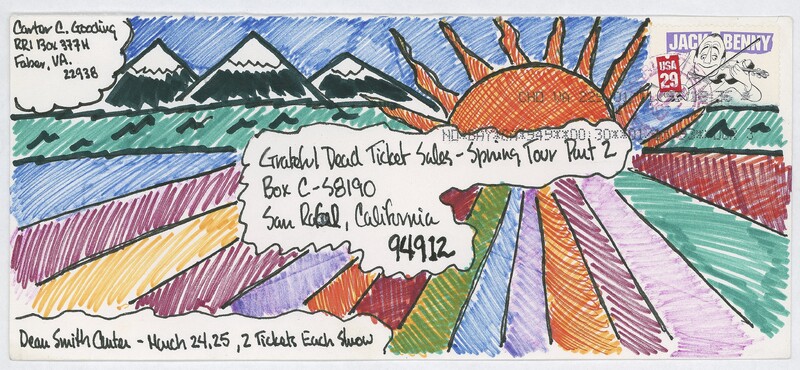 Carter C. Gooding
RR1 Box 377H
Faber, VA.
22938
JACK BENNY
USA
29
Grateful Dead Ticket Sales - Spring Tour Part 2
Box C-S8190
San Rafael, California
94912
Dean Smith Center - March 24,25, 2 Tickets Each Show